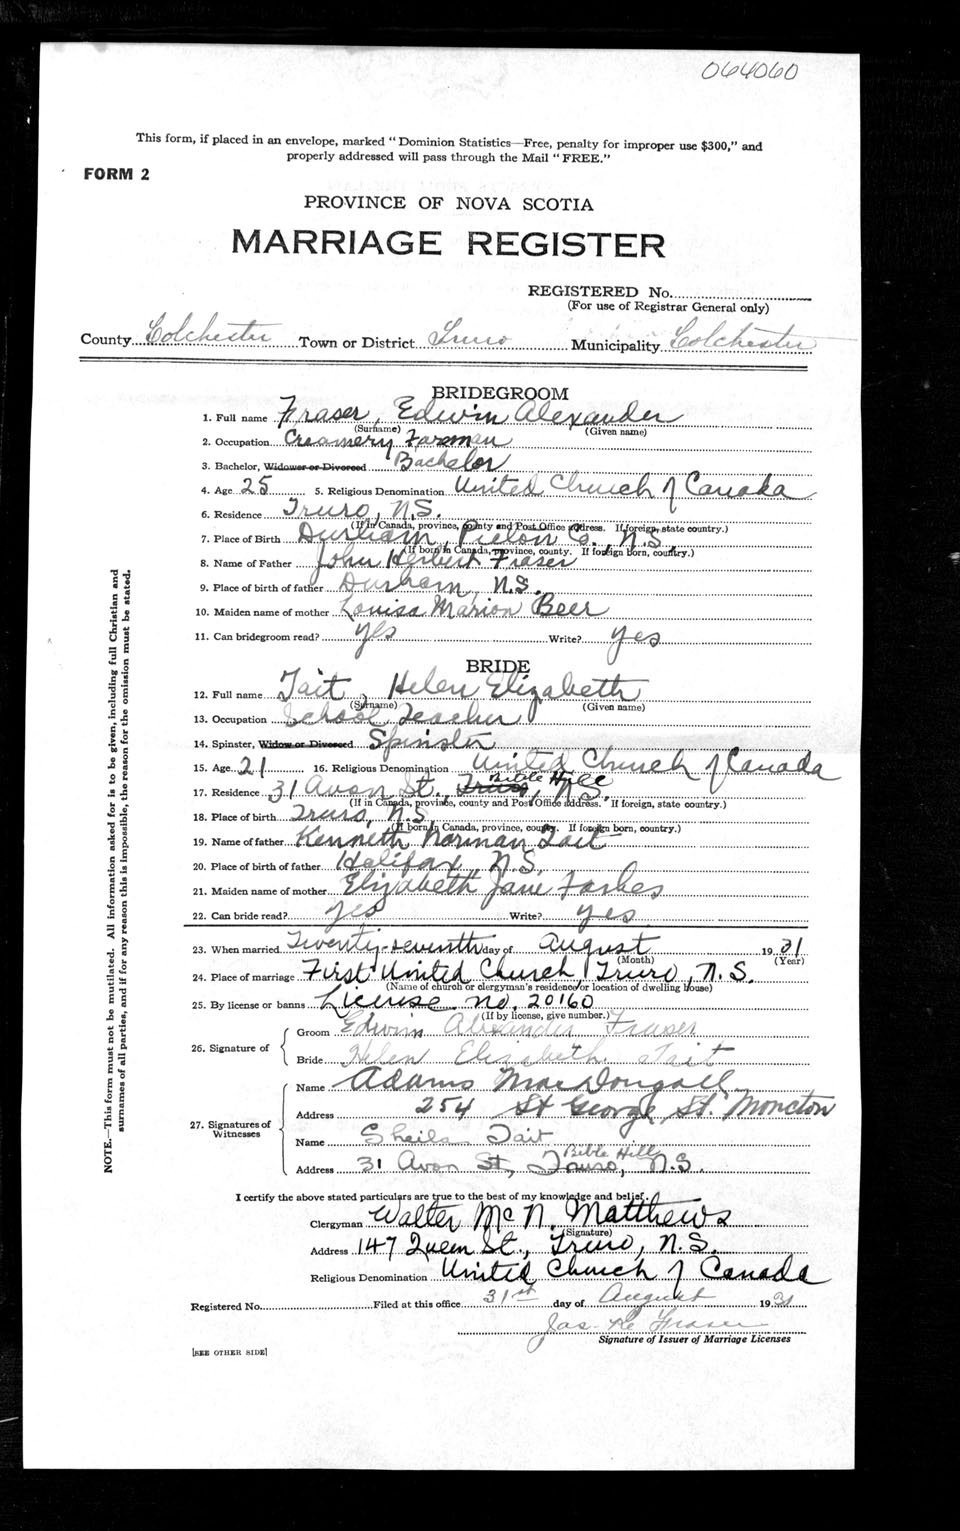 064060
This form, if placed in an envelope, marked "Dominion Statistics—Free, penalty for improper use $300," and
properly addressed will pass through the Mail "FREE."
FORM 2
PROVINCE OF NOVA SCOTIA
MARRIAGE REGISTER
REGISTERED No.
(For use of Registrar General only)
County Colchester Town or District Truro Municipality Colchester
BRIDEGROOM
1. Full name Fraser, Edwin Alexander
(Surname) (Given name)
2. Occupation Creamery Foreman
3. Bachelor, Widower or Divorced Bachelor
4. Age 25 5. Religious Denomination United Church of Canada
6. Residence Truro, N.S.
(If in Canada, province, county and Post Office address. If foreign, state country.)
7. Place of Birth Durham, Pictou Co., N.S.
(If born in Canada, province, county. If foreign born, country.)
8. Name of Father John Herbert Fraser
9. Place of birth of father Durham, N.S.
10. Maiden name of mother Louisa Marion Beer
11. Can bridegroom read? yes Write? yes
BRIDE
12. Full name Tait, Helen Elizabeth
(Surname) (Given name)
13. Occupation School Teacher
14. Spinster, Widow or Divorced Spinster
15. Age 21 16. Religious Denomination United Church of Canada
17. Residence 31 Avon St., Truro, Bible Hill, N.S.
(If in Canada, province, county and Post Office address. If foreign, state country.)
18. Place of birth Truro, N.S.
(If born in Canada, province, county. If foreign born, country.)
19. Name of father Kenneth Norman Tait
20. Place of birth of father Halifax, N.S.
21. Maiden name of mother Elizabeth Jane Forbes
22. Can bride read? yes Write? yes
23. When married Twenty-seventh day of August 1931
(Month) (Year)
24. Place of marriage First United Church, Truro, N.S.
(Name of church or clergyman's residence or location of dwelling house)
25. By license or banns License no. 20160
(If by license, give number.)
26. Signature of
Groom Edwin Alexander Fraser
Bride Helen Elizabeth Tait
27. Signatures of Witnesses
Name Adams MacDougall
Address 254 St George St. Moncton
Name Sheila Tait
Address 31 Avon St, Truro, Bible Hill N.S.
I certify the above stated particulars are true to the best of my knowledge and belief.
Clergyman Walter McN. Matthews
(Signature)
Address 147 Queen St., Truro, N.S.
Religious Denomination United Church of Canada
Registered No. Filed at this office 31st day of August 1931
Jas. Fraser
Signature of Issuer of Marriage Licenses
[SEE OTHER SIDE]
NOTE.—This form must not be mutilated. All information asked for is to be given, including full Christian and
surnames of all parties, and if for any reason this is impossible, the reason for the omission must be stated.